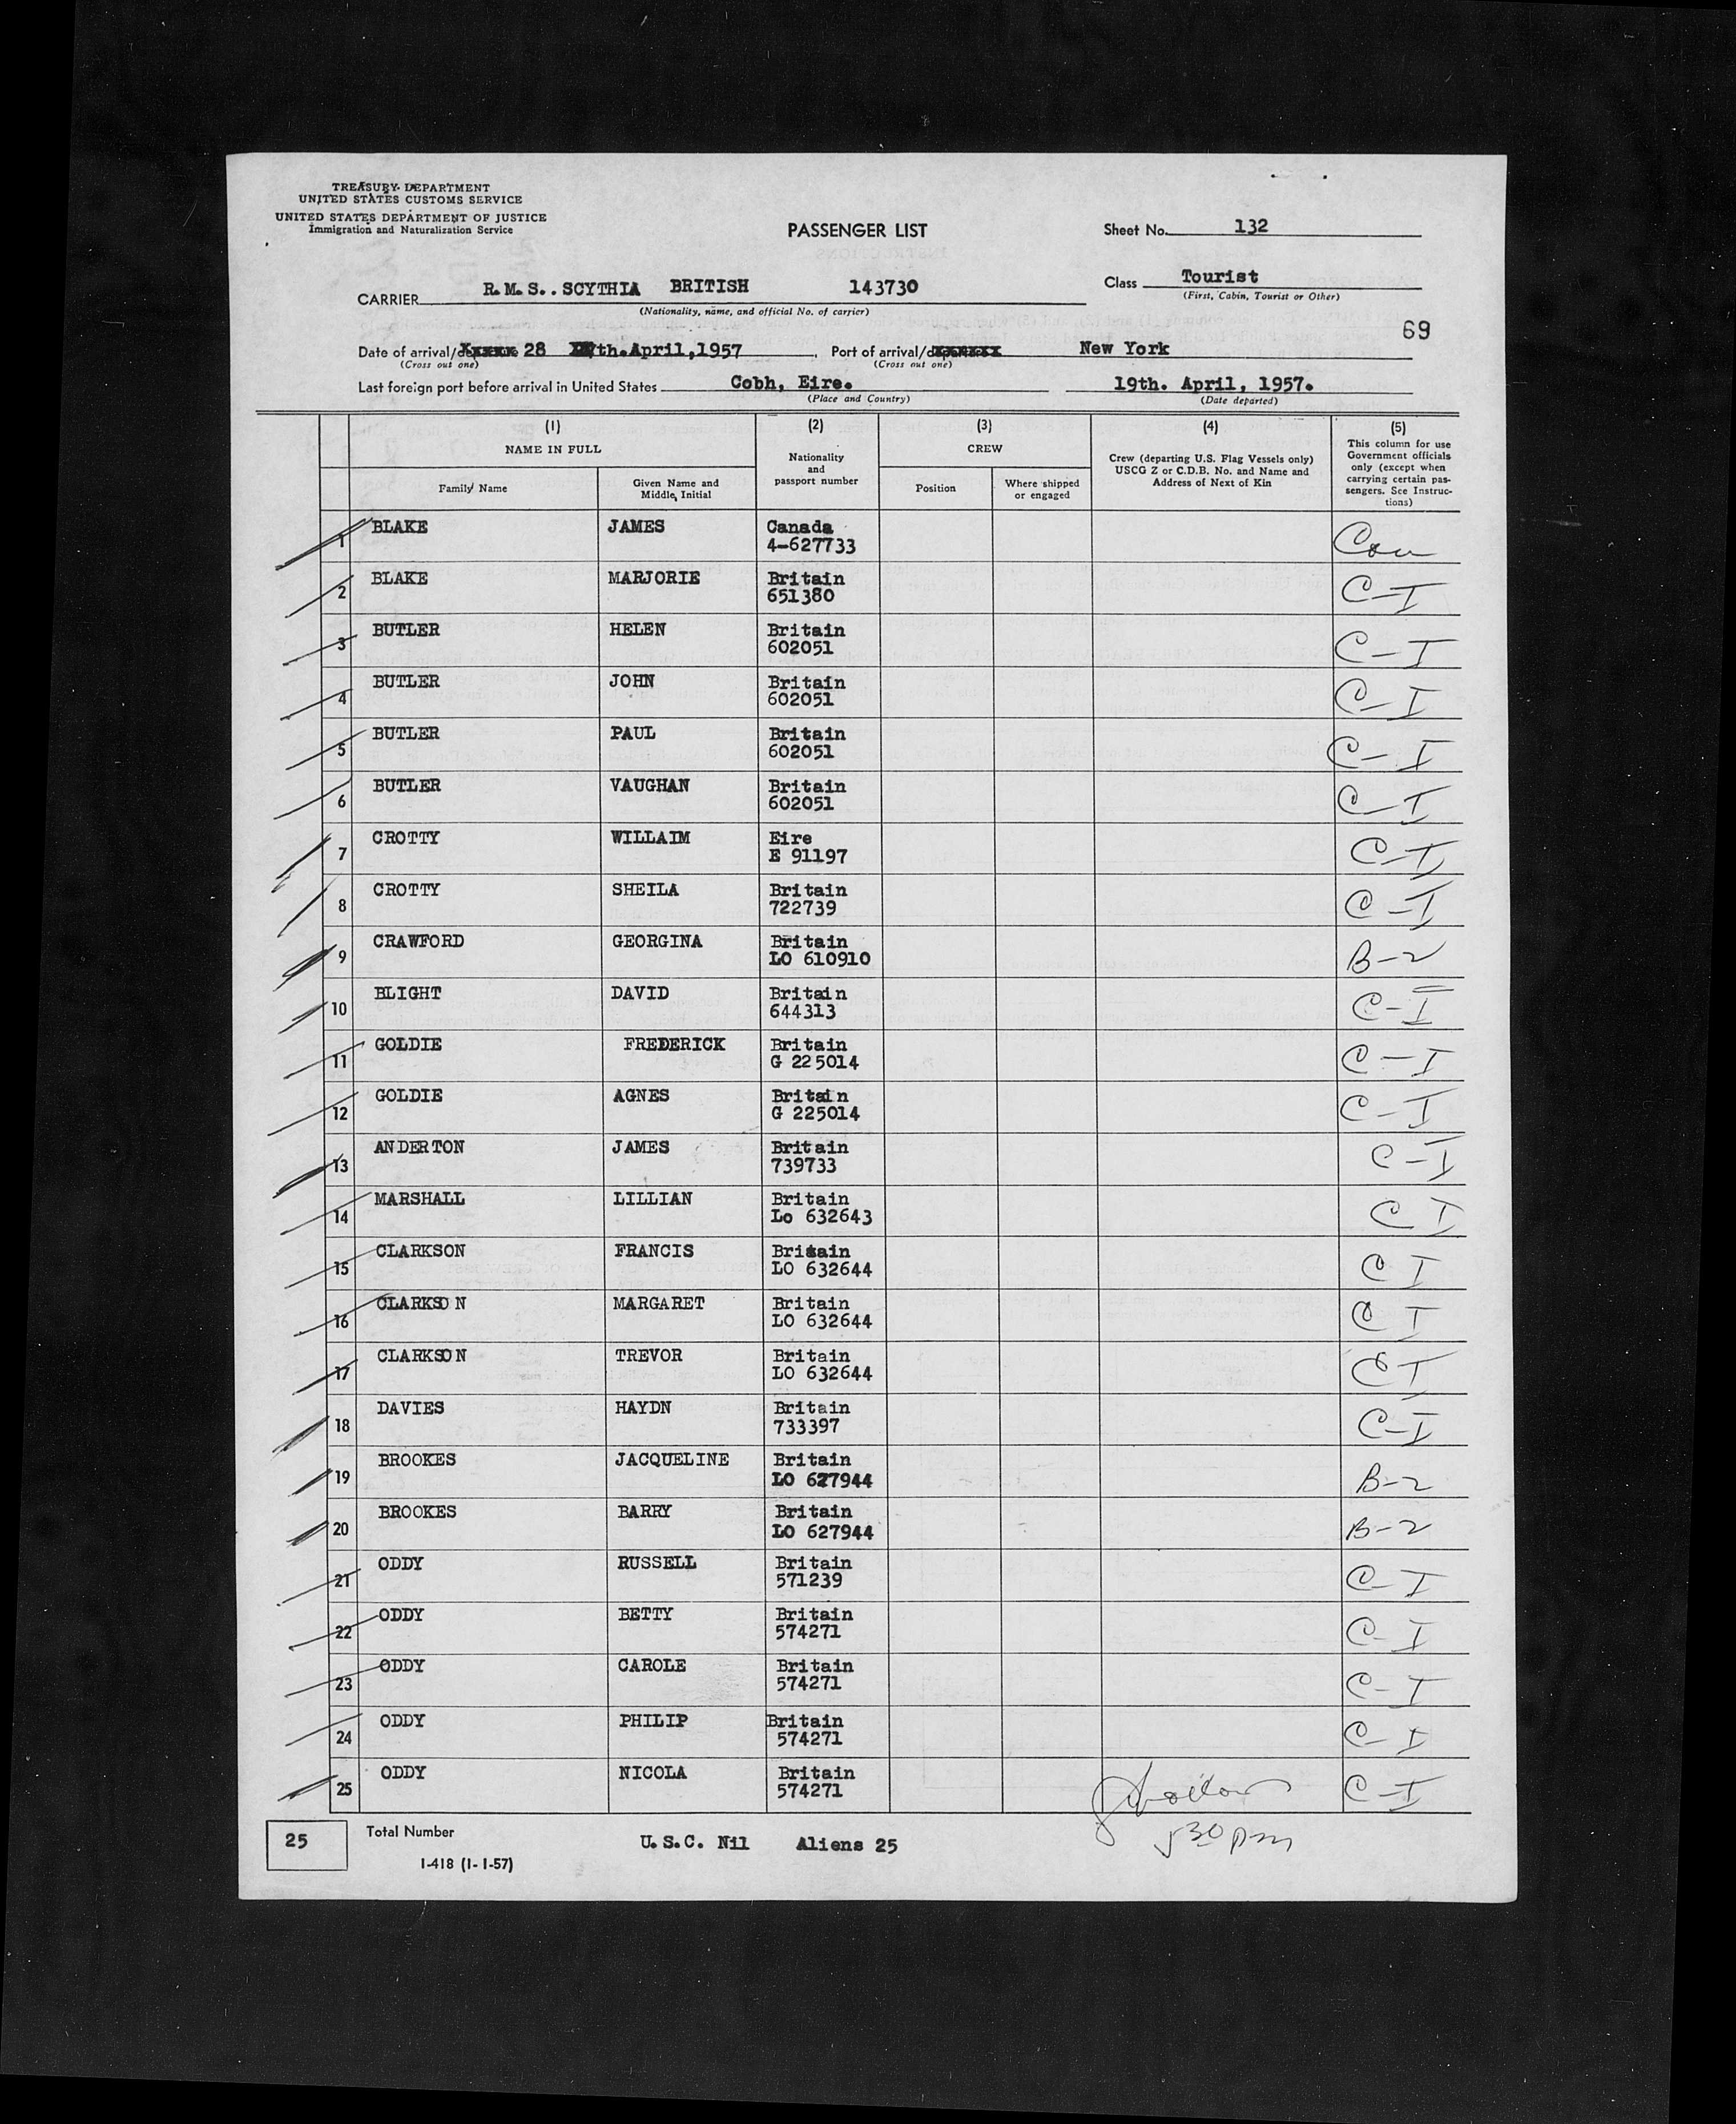 TREASURY DEPARTMENT
UNITED STATES CUSTOMS SERVICE
UNITED STATES DEPARTMENT OF JUSTICE
Immigration and Naturalization Service
PASSENGER LIST
Sheet No. 132
CARRIER R.M.S.. SCYTHIA BRITISH 143730
(Nationality, name, and official No. of carrier)
Class Tourist
(First, Cabin, Tourist or Other)
69
Date of arrival/ 28 th.April,1957 Port of arrival/ New York
(Cross out one) (Cross out one)
Last foreign port before arrival in United States Cobh, Eire. 19th. April, 1957.
(Place and Country) (Date departed)
(1) (2) (3) (4) (5)
NAME IN FULL
Family Name
Given Name and Middle Initial
Nationality and passport number
CREW
Position
Where shipped or engaged
Crew (departing U.S. Flag Vessels only) USCG Z or C.D.B. No. and Name and Address of Next of Kin
This column for use Government officials only (except when carrying certain passengers. See Instructions)
1 BLAKE JAMES Canada 4-627733
2 BLAKE MARJORIE Britain 651380 C-I
3 BUTLER HELEN Britain 602051 C-I
4 BUTLER JOHN Britain 602051 C-I
5 BUTLER PAUL Britain 602051 C-I
6 BUTLER VAUGHAN Britain 602051 C-I
7 CROTTY WILLAIM Eire E 91197 C-I
8 CROTTY SHEILA Britain 722739 C-I
9 CRAWFORD GEORGINA Britain LO 610910 B-2
10 BLIGHT DAVID Britain 644313 C-I
11 GOLDIE FREDERICK Britain G 225014 C-I
12 GOLDIE AGNES Britain G 225014 C-I
13 ANDERTON JAMES Britain 739733 C-I
14 MARSHALL LILLIAN Britain Lo 632643 C I
15 CLARKSON FRANCIS Britain LO 632644 C I
16 CLARKSON MARGARET Britain LO 632644 C I
17 CLARKSON TREVOR Britain LO 632644 C I
18 DAVIES HAYDN Britain 733397 C-I
19 BROOKES JACQUELINE Britain LO 627944 B-2
20 BROOKES BARRY Britain LO 627944 B-2
21 ODDY RUSSELL Britain 571239 C-I
22 ODDY BETTY Britain 574271 C-I
23 ODDY CAROLE Britain 574271 C-I
24 ODDY PHILIP Britain 574271 C-I
25 ODDY NICOLA Britain 574271 C-I
530 pm
25 Total Number U.S.C. Nil Aliens 25
I-418 (1-1-57)